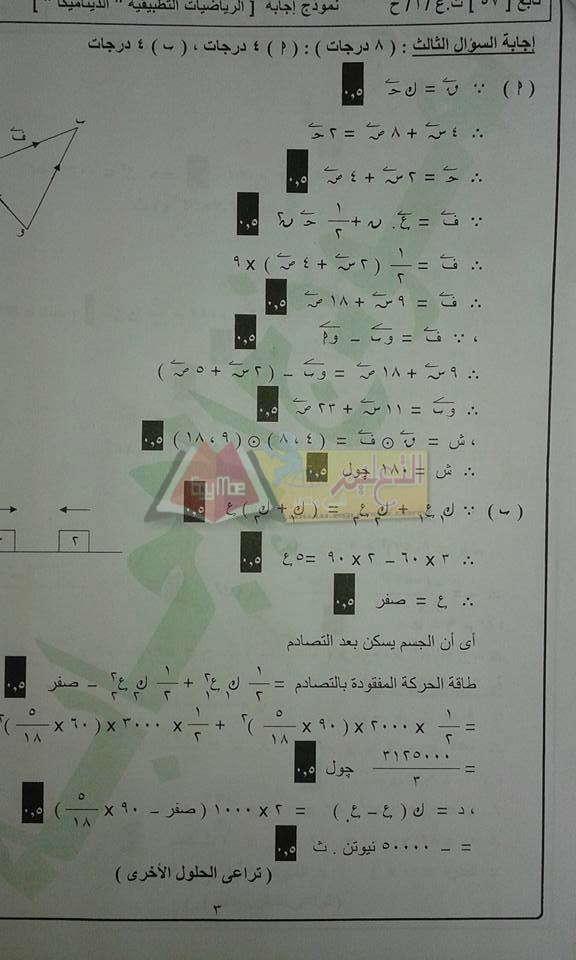 تابع [ ٥٧ ] ث.ع / ١ / ح نموذج إجابة [ الرياضيات التطبيقية " الديناميكا " ]
إجابة السؤال الثالث : ( ٨ درجات ) : ( ٢ ) ٤ درجات ، ( ب ) ٤ درجات
( ٢ ) ∵ ق = ك حـ ٠,٥
∴ ٤ س + ٨ ص = ٢ حـ
∴ حـ = ٢ س + ٤ ص ٠,٥
∵ ف = ع. ن + ١/٢ حـ ن٢ ٠,٥
∴ ف = ١/٢ ( ٢ س + ٤ ص ) × ٩
∴ ف = ٩ س + ١٨ ص ٠,٥
، ∵ ف = وب − و٢ ٠,٥
∴ ٩ س + ١٨ ص = وب − ( ٢ س + ٥ ص )
∴ وب = ١١ س + ٢٣ ص ٠,٥
، ش = ق ⊙ ف = ( ٤ ، ٨ ) ⊙ ( ٩ ، ١٨ ) ٠,٥
∴ ش = ١٨٠ چول ٠,٥
( ب ) ∵ ك١ ع١ + ك٢ ع٢ = ( ك١ + ك٢ ) ع ٠,٥
∴ ٣ × ٦٠ − ٢ × ٩٠ = ٥ ع ٠,٥
∴ ع = صفر ٠,٥
أى أن الجسم يسكن بعد التصادم
طاقة الحركة المفقودة بالتصادم = ١/٢ ك١ ع١٢ + ١/٢ ك٢ ع٢٢ − صفر ٠,٥
= ١/٢ × ٢٠٠٠ × ( ٩٠ × ٥/١٨ )٢ + ١/٢ × ٣٠٠٠ × ( ٦٠ × ٥/١٨ )٢
= ٣١٢٥٠٠٠/٣ چول ٠,٥
، د = ك ( ع − ع. ) = ٢ × ١٠٠٠ ( صفر − ٩٠ × ٥/١٨ ) ٠,٥
= − ٥٠٠٠٠ نيوتن . ث ٠,٥
( تراعى الحلول الأخرى )
٣
ف
ب
و
٢
التعليم